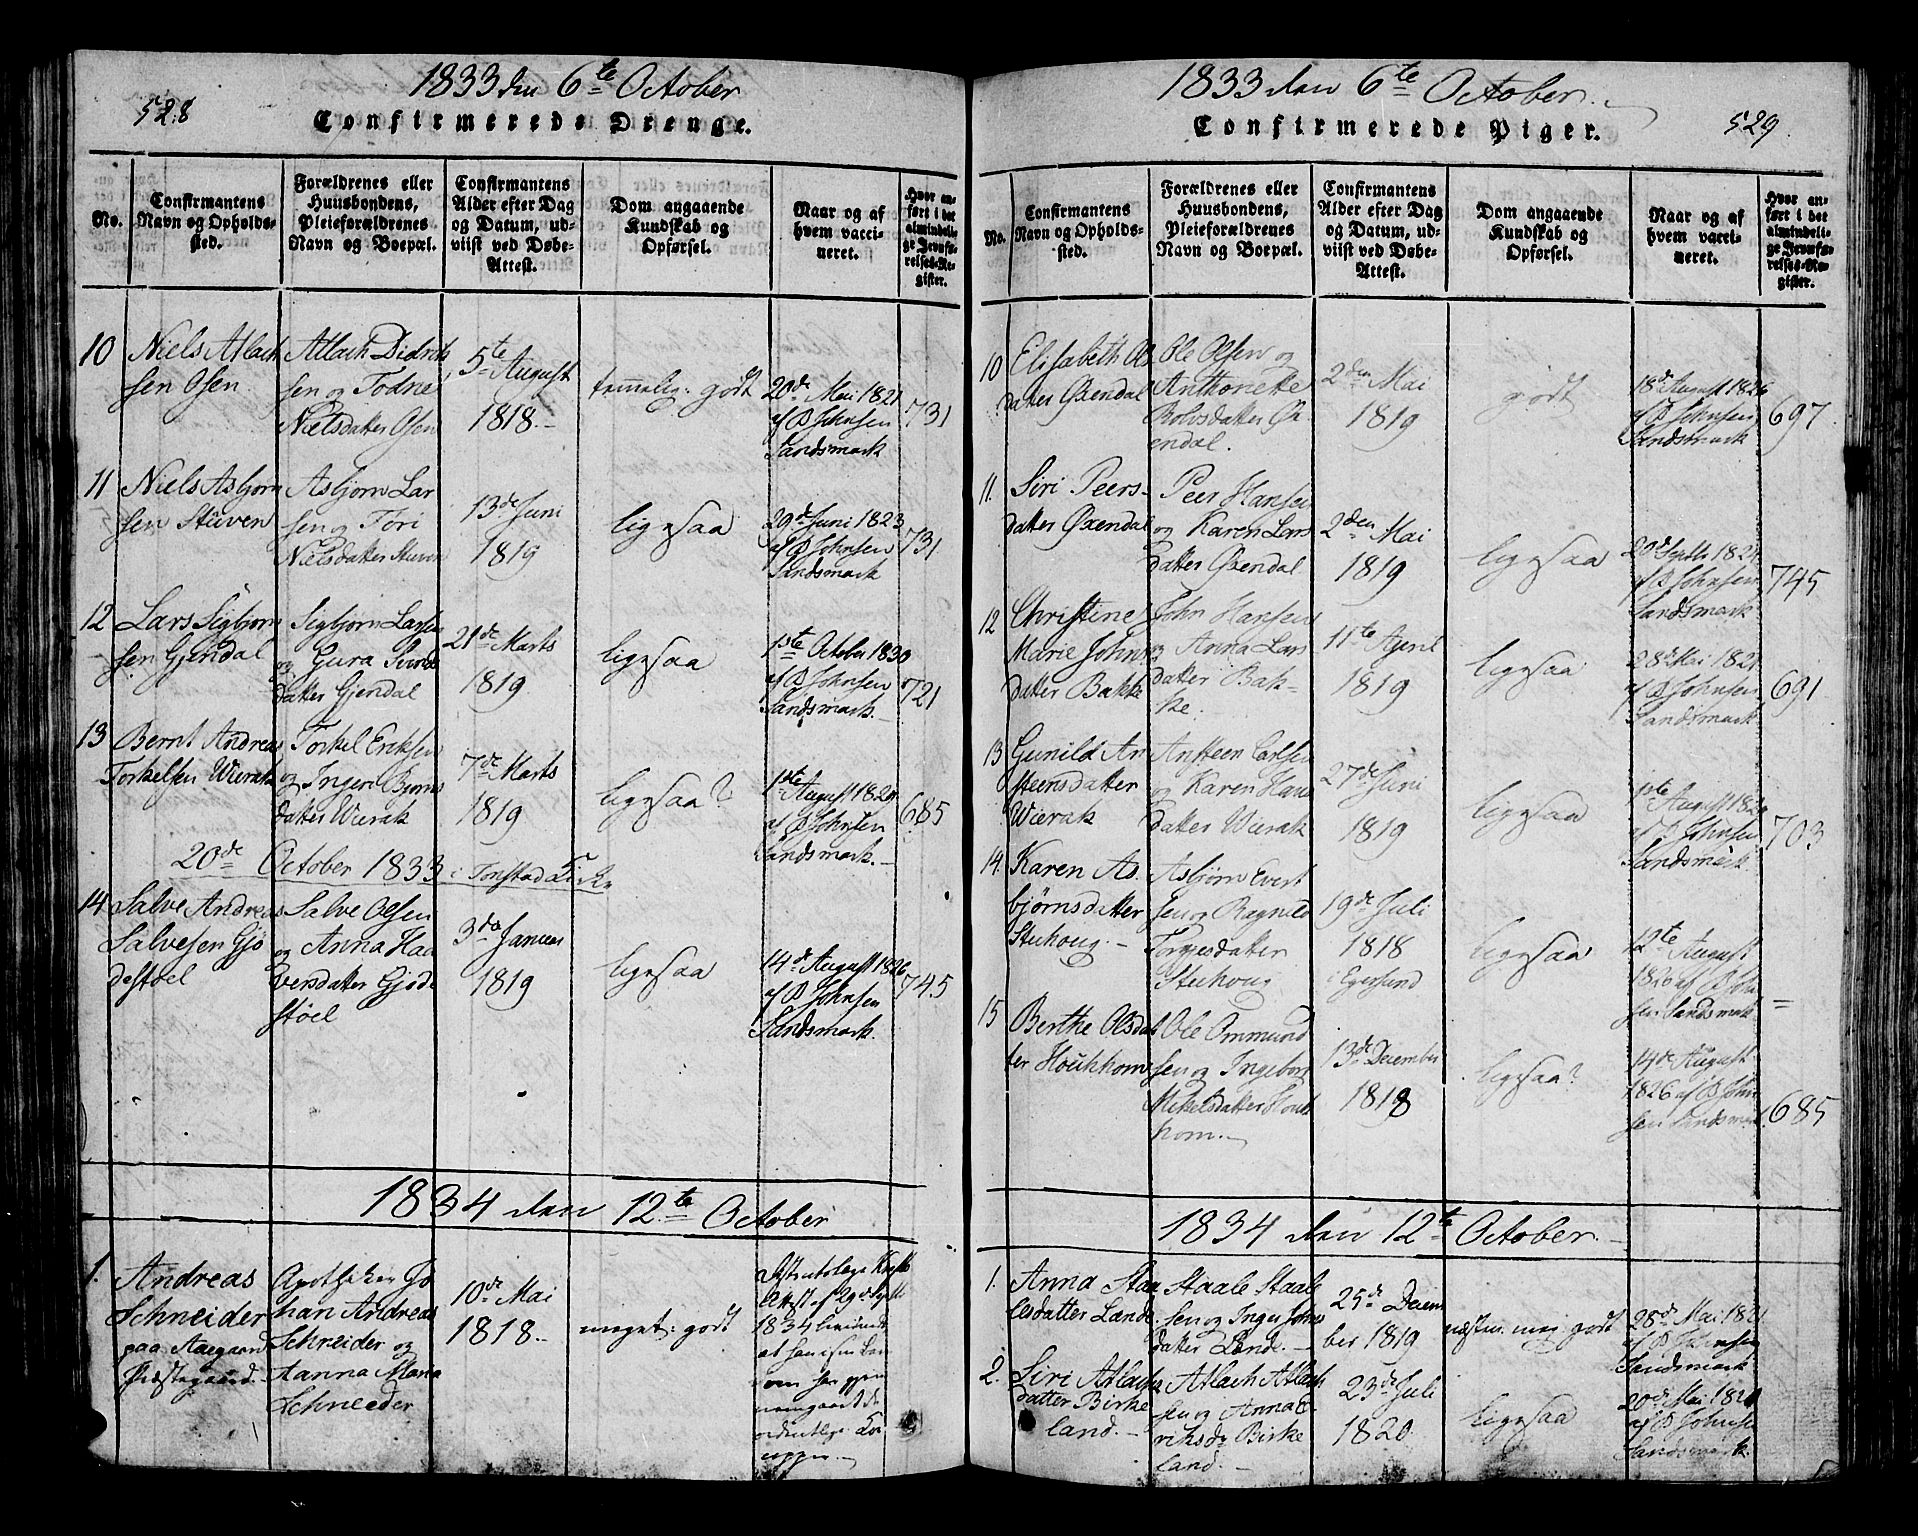 528
1833 den 6te October
Confirmerede Drenge.
No.
Confirmantens
Navn og Opholds-
sted.
Forældrenes eller
Huusbondens,
Pleieforældrenes
Navn og Boepæl.
Confirmantens
Alder efter Dag
og Datum, ud-
viist ved Døbe-
Attest.
Dom angaaende
Kundskab og
Opførsel.
Naar og af
hvem vacci-
neret.
Hvor an-
ført i det
almindeli-
ge Jevnfø-
relses-Re-
gister.
10
Niels Atlach
sen Osen
Atlach Didrik
sen og Todne
Nielsdatter Osen
5te August
1818.
temmelig: godt
20de Mai 1821
af B Johnsen
Sandsmark
731
11
Niels Asbjørn
sen Stuven
Asbjørn Lar
sen og Tori
Nielsdatter Stuven
13de Juni
1819
ligesaa
29de Juni 1823
af B Johnsen
Sandsmark
731
12
Lars Sigbjørn
sen Gjendal
Sigbjørn Larsen
og Gura Sivert
datter Gjendal
21de Marts
1819
ligesaa
1ste October 1830
af B Johnsen
Sandsmark.
721
13
Bernt Andreas
Torkelsen Wierak
Torkel Eriksen
og Ingeri Bjørns
datter Wierak
7de Marts
1819
ligesaa?
1ste August 1820
af B Johnsen
Sandsmark.
685
20de October 1833 i Tonstad Kirke
14
Salve Andreas
Salvesen Gjø
destoel
Salve Olsen
og Anna Haa
versdatter Gjøde
støel
3de Januar
1819
ligesaa
14de August 1826
af B Johnsen
Sandsmark.
745
1834 den 12te October
1.
Andreas
Schneider
paa Aaegaard
Præstegaard.
Apotheker Jo
han Andreas
Schneider og
Hanna Maria
Schneider
10de Mai
1818.
meget: godt
Attest af 29de
1834
at han
som har gjen
nemgaaet de
ordentlige Ko
copper.
529
1833 den 6te October
Confirmerede Piger.
No.
Confirmantens
Navn og Opholds-
sted.
Forældrenes eller
Huusbondens,
Pleieforældrenes
Navn og Boepæl.
Confirmantens
Alder efter Dag
og Datum, ud-
viist ved Døbe-
Attest.
Dom angaaende
Kundskab og
Opførsel.
Naar og af
hvem vacci-
neret.
Hvor an-
ført i det
almindeli-
ge Jevnfø-
relses-Re-
gister.
10
Elisabeth Ols
datter Øxendal
Ole Olsen og
Anthonette
Robisdatter Øx
endal.
2den Mai
1819
godt
18de August 1826
af B Johnsen
Sandsmark
697
11.
Siri Peers-
datter Øxendal
Peer Hansen
og Karen Lars
datter Øxendal
2den Mai
1819
ligesaa
29de Septb 1824
af B Johnsen
Sandsmark
745
12
Christine
Marie Johns
datter Bakke
John Hansen
og Anna Lars
datter Bak-
ke.
11te April
1819
ligesaa
28de Mai 1821
af B Johnsen
Sandsmark
691
13
Gunild An
steensdatter
Wierak
Ansteen Carlsen
og Karen Hans
datter Wierak
27de Juni
1819
ligesaa
1ste August 1820
af B Johnsen
Sandsmark
703
14.
Karen As
bjørnsdatter
Stuhoug.
Asbjørn Evert
sen og Ragnild
Torgjesdatter
Stuhoug
19de Juli
1818
i Egersund
ligesaa
12te August
1826 af B John
sen Sandsmark
=
15
Berthe Olsdat
ter Houkhom
Ole Ommund
sen og Ingeborg
Mikelsdatter Houk
hom.
13de December
1818
ligesaa?
14de August
1826 af B John
sen Sandsmark
685
1834 den 12te October.
1.
Anna Staa
lesdatter Lande
Staale Staale
sen og Inger Johns
datter Lande.
25de Decem
ber 1819
næsten meg godt
28de Mai 1821
af B Johnsen
Sandsmark
2.
Siri Atlachs
datter Birke
land.
Atlach Atlach
sen og Anna E
riksd. Birke
land.
23de Juli
1820
ligesaa
20de Mai 1821
af B Johnsen
Sandsmark